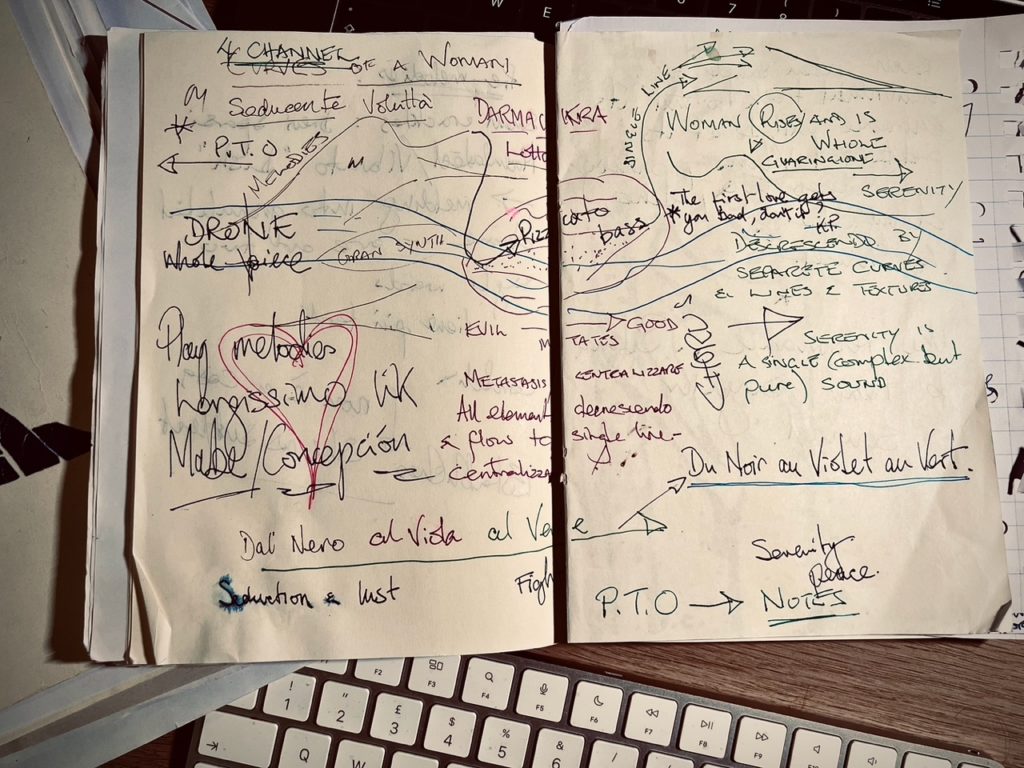 4 CHANNEL
CURVES OF A WOMAN
Seducente Voluttà
P.T.O
MELODIES
M
DRONE
Whole piece
GRAN SYNTH
DARMAC KARA
Lotta
Pizzicato
bass
EVIL → GOOD
Play melodies
Largissimo LIK
Made/Concepción
METASTASIS
CENTRALIZZARE
All element decrescendo
& flow to single line-
centralizza
Dal Nero al Viola al Ve e
Seduction & lust
Figh
SINGLE LINE
WOMAN RISES AND IS
WHOLE
GUARIGIONE
SERENITY
The first love gets
* you bad, don't it?
K.P.
DECRESCENDO BY
SEPARETE CURVES
& LINES & TEXTURES
SERENITY IS
A SINGLE (complex but
pure) SOUND
Du Noir au Violet au Vert.
Serenity
peace.
P.T.O → NOTES
W E
F2 F3 F4 F5 F6 F7 F8 F9
! 1 " 2 £ 3 $ 4 % 5 & 6
Q W